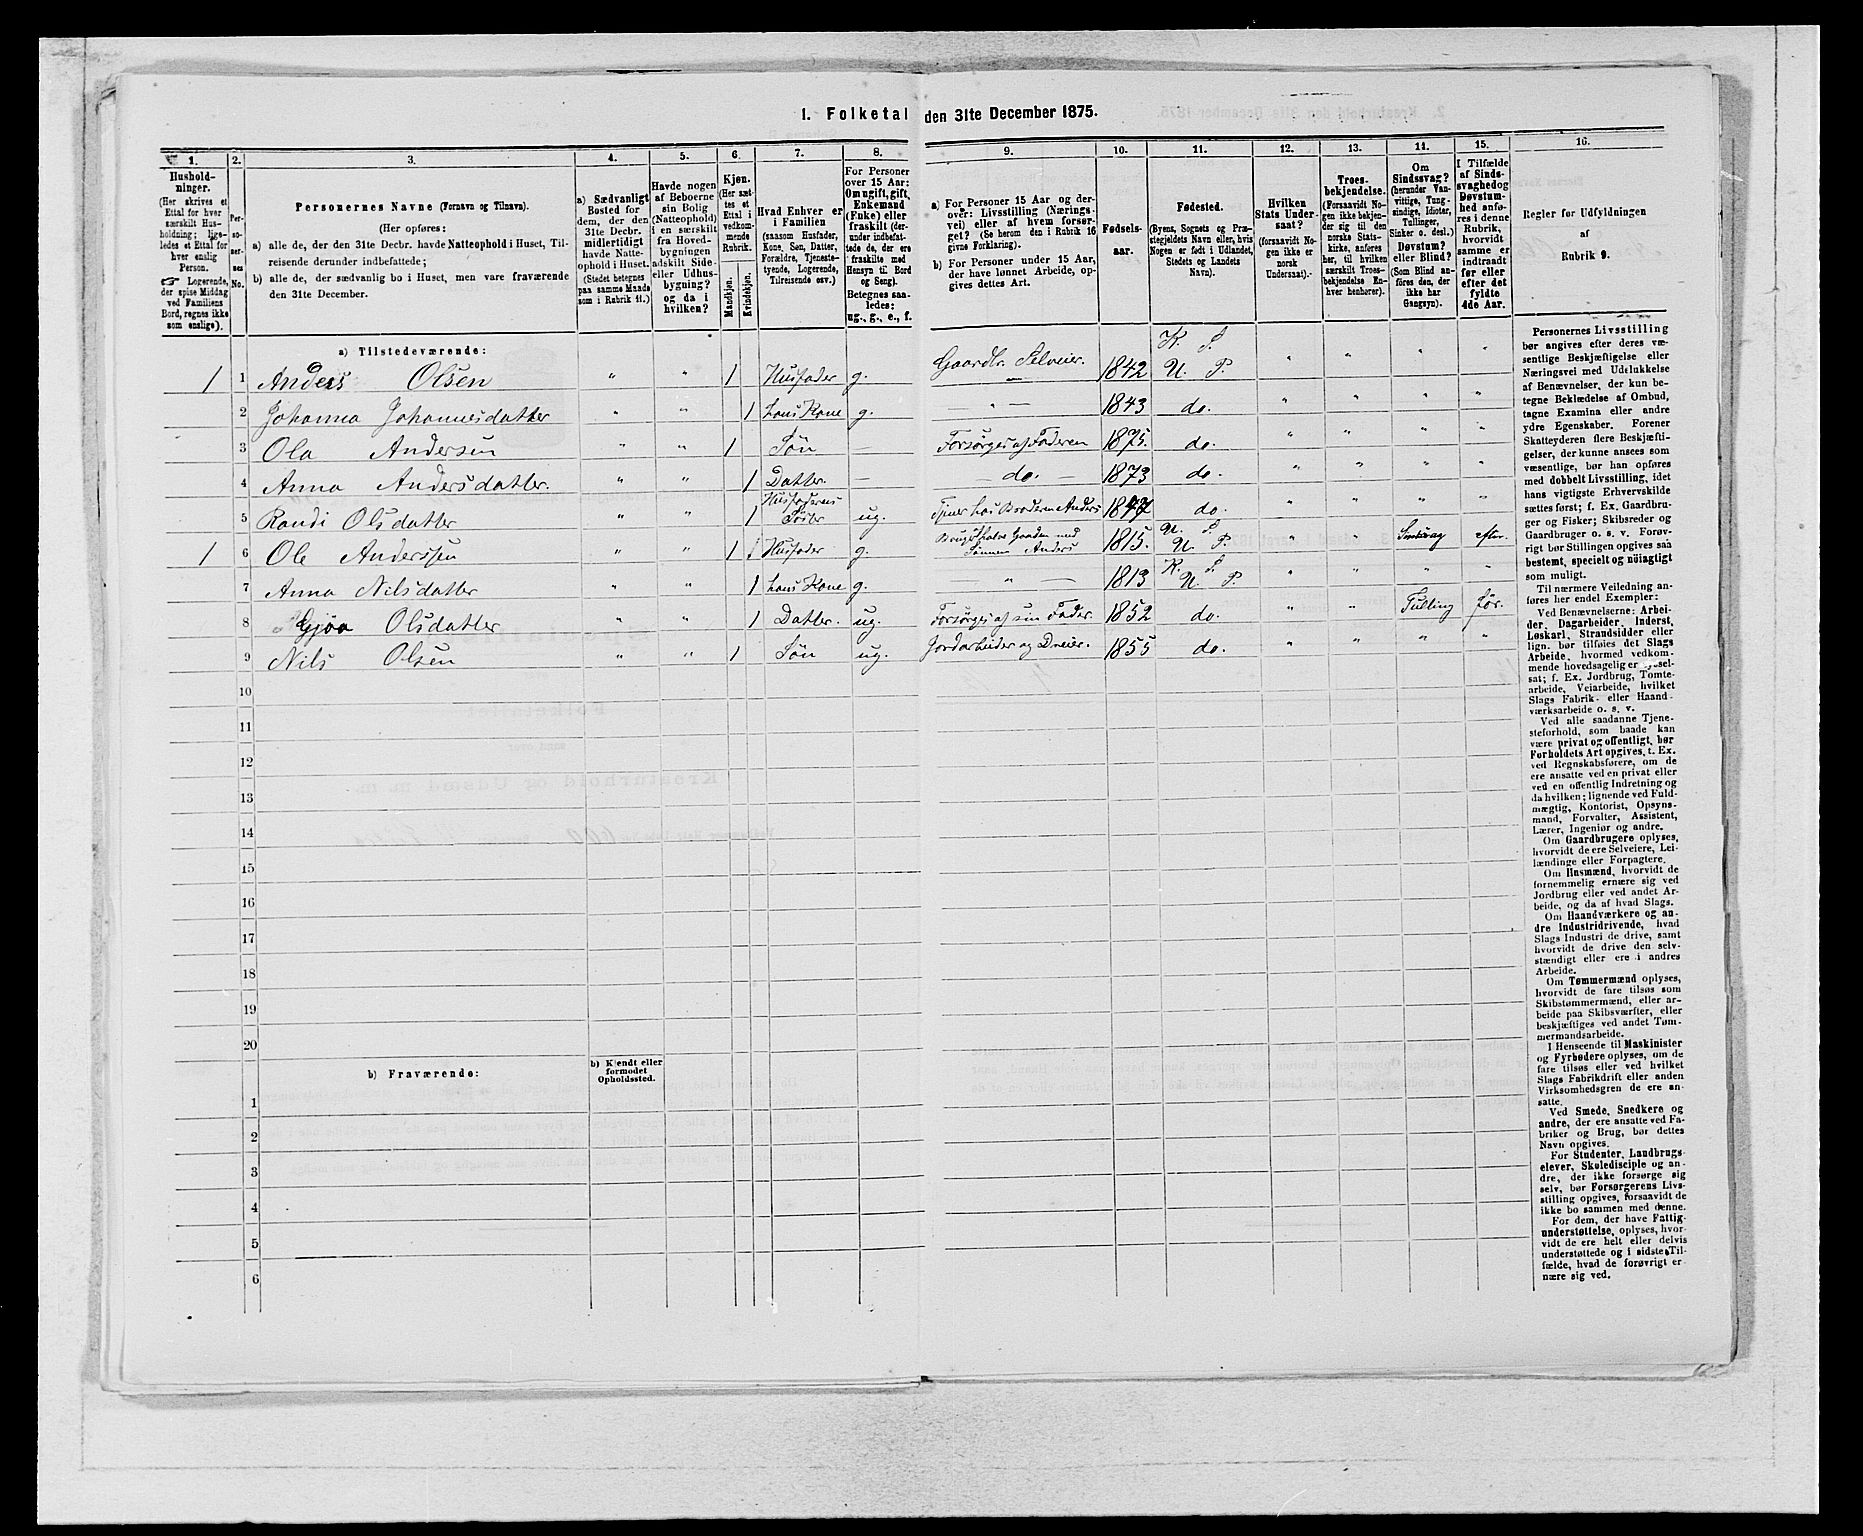 1. Folketal den 31te December 1875.
1. 2. 3. 4. 5. 6. 7. 8. 9. 10. 11. 12. 13. 14. 15. 16.
Hushold-
ninger.
(Her skrives et
Ettal for hver
særskilt Hus-
holdning; lige-
ledes et Ettal for
hver enslig
Person.
☞ Logerende,
der spise Middag
ved Familiens
Bord, regnes ikke
som enslige).
Per-
so-
ner-
nes
No.
Personernes Navne (Fornavn og Tilnavn).
(Her opføres:
a) alle de, der den 31te Decbr. havde Natteophold i Huset, Til-
reisende derunder indbefattede;
b) alle de, der sædvanlig bo i Huset, men vare fraværende
den 31te December.
a) Sædvanligt
Bosted for
dem, der den
31te Decbr.
midlertidigt
havde Natte-
ophold i Huset.
(Stedet betegnes
paa samme Maade
som i Rubrik 11.)
Havde nogen
af Beboerne
sin Bolig
(Natteophold)
i en særskilt
fra Hoved-
bygningen
adskilt Side-
eller Udhus-
bygning?
og da i
hvilken?
Kjøn.
(Her sæt-
tes et
Ettal i
vedkom-
mende
Rubrik.
Mandkjøn.
Kvindekjøn.
Hvad Enhver er
i Familien
(saasom Husfader,
Kone, Søn, Datter,
Forældre, Tjeneste-
tyende, Logerende,
Tilreisende osv.)
For Personer
over 15 Aar:
Om ugift, gift,
Enkemand
(Enke) eller
fraskilt (der-
under indbefat-
tede de, der ere
fraskilte med
Hensyn til Bord
og Seng).
Betegnes saa-
ledes:
ug., g., e., f.
a) For Personer 15 Aar og der-
over: Livsstilling (Nærings-
vei) eller af hvem forsør-
get? (Se herom den i Rubrik 16
givne Forklaring).
b) For Personer under 15 Aar,
der have lønnet Arbeide, op-
gives dettes Art.
Fødsels-
aar.
Fødested.
(Byens, Sognets og Præ-
stegjeldets Navn eller, hvis
Nogen er født i Udlandet,
Stedets og Landets
Navn).
Hvilken
Stats Under-
saat?
(forsaavidt No-
gen ikke er
norsk
Undersaat).
Troes-
bekjendelse.
(Forsaavidt No-
gen ikke bekjen-
der sig til den
norske Stats-
kirke, anføres
her, til hvilken
særskilt Troes-
bekjendelse En-
hver henhører).
Om
Sindssvag?
(herunder Van-
vittige, Tung-
sindige, Idioter,
Tullinger,
Sinker o. desl.)
Døvstum?
eller Blind?
(Som Blind an-
føres den, der
ikke har
Gangsyn).
I Tilfælde
af Sinds-
svaghed og
Døvstum-
hed anfø-
res i denne
Rubrik,
hvorvidt
samme er
indtraadt
før eller
efter det
fyldte
4de Aar.
Regler for Udfyldningen
af
Rubrik 9.
a) Tilstedeværende:
1 1 Anders Olsen " " 1 Husfader g. Gaardbr. Selveier. 1842 K. S. N. P. " " " "
2 Johanna Johannesdatter " " 1 hans Kone g. — " — 1843 do. " " " "
3 Ola Andersen " " 1 Søn — Forsørges af Faderen 1875. do. " " " "
4 Anna Andersdatter. " " 1 Datter. — — do. — 1873 do. " " " "
5 Randi Olsdatter " " 1 Husfaderens Søster ug. Tjener hos Broderen Anders do. " " " "
1 6 Ole Anderssen " " 1 Husfader g. Gaarden med Sønnen Anders 1815. S. N. P. " " Sindssvag efter.
7 Anna Nilsdatter " " 1 hans Kone g. — " — 1813 K. S. N. P. " " " "
8 Olsdatter " " 1 Datter. ug. Forsørges af sin Fader. 1852 do. " " Tulling før.
9 Nils Olsen " " 1 Søn ug. Jordarbeider og Dreier. 1855 do. " " " "
10
11
12
13
14
15
16
17
18
19
20
b) Fraværende:
b) Kjendt eller
formodet
Opholdssted.
1
2
3
4
5
6
Personernes Livsstilling
bør angives efter deres væ-
sentlige Beskjæftigelse eller
Næringsvei med Udelukkelse
af Benævnelser, der kun be-
tegne Beklædelse af Ombud,
tagne Examina eller andre
ydre Egenskaber. Forener
Skatteyderen flere Beskjæfti-
gelser, der kunne ansees som
væsentlige, bør han opføres
med dobbelt Livsstilling, idet
hans vigtigste Erhvervskilde
sættes først; f. Ex. Gaardbru-
ger og Fisker; Skibsreder og
Gaardbruger o. s. v. Forøv-
rigt bør Stillingen opgives saa
bestemt, specielt og nøiagtigt
som muligt.
Til nærmere Veiledning an-
føres her endel Exempler:
Ved Benævnelserne: Arbei-
der, Dagarbeider, Inderst,
Løskarl, Strandsidder eller
lign. bør tilføies det Slags
Arbeide, hvormed vedkom-
mende hovedsagelig er syssel-
sat; f. Ex. Jordbrug, Tomte-
arbeide, Veiarbeide, hvilket
Slags Fabrik- eller Haand-
værksarbeide o. s. v.
Ved alle saadanne Tjene-
steforhold, som baade kan
være privat og offentligt, bør
Forholdets Art opgives, t. Ex.
ved Regnskabsførere, om de
ere ansatte ved en privat eller
ved en offentlig Indretning og
da hvilken; lignende ved Fuld-
mægtig, Kontorist, Opsyns-
mand, Forvalter, Assistent,
Lærer, Ingeniør og andre.
Om Gaardbrugere oplyses,
hvorvidt de ere Selveiere, Lei-
lændinge eller Forpagtere.
Om Husmænd, hvorvidt de
fornemmelig ernære sig ved
Jordbrug eller ved andet Ar-
beide, og da af hvad Slags.
Om Haandværkere og an-
dre Industridrivende, hvad
Slags Industri de drive, samt
hvorvidt de drive den selv-
stændigt eller ere i andres
Arbeide.
Om Tømmermænd oplyses,
hvorvidt de fare tilsøs som
Skibstømmermænd, eller ar-
beide paa Skibsværfter, eller
beskjæftiges ved andet Tøm-
mermandsarbeide.
I Henseende til Maskinister
og Fyrbødere oplyses, om de
fare tilsøs eller ved hvilket
Slags Fabrikdrift eller anden
Virksomhedsgren de ere an-
satte.
Ved Smede, Snedkere og
andre, der ere ansatte ved Fa-
briker og Brug, bør dettes
Navn opgives.
For Studenter, Landbrugs-
elever, Skoledisciple og an-
dre, der ikke forsørge sig
selv, bør Forsørgerens Livs-
stilling opgives, forsaavidt de
ikke bo sammen med denne.
For dem, der have Fattig-
understøttelse, oplyses, hvor-
vidt de ere helt eller delvis
understøttede og i sidste Til-
fælde, hvad de forøvrigt er-
nære sig ved.